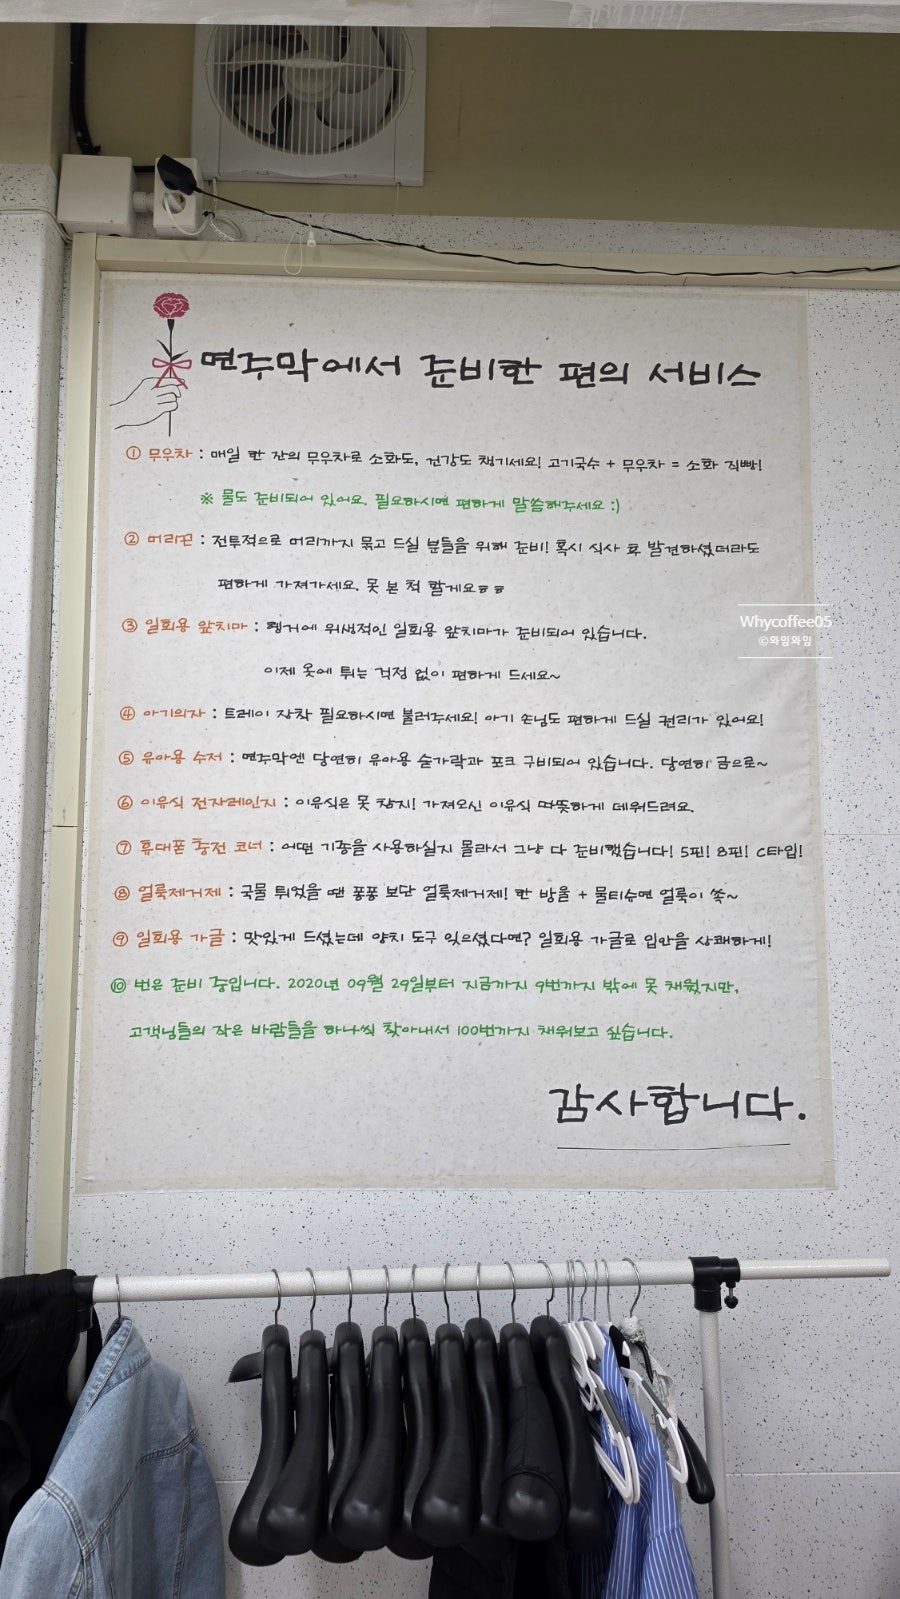 면주막에서 준비한 편의 서비스
① 무우차 : 매일 한 잔의 무우차로 소화도, 건강도 챙기세요! 고기국수 + 무우차 = 소화 직빵!
※ 물도 준비되어 있어요. 필요하시면 편하게 말씀해주세요 :)
② 머리끈 : 전투적으로 머리까지 묶고 드실 분들을 위해 준비! 혹시 식사 후 발견하셨더라도
편하게 가져가세요. 못 본 척 할게요ㅎㅎ
③ 일회용 앞치마 : 행거에 위생적인 일회용 앞치마가 준비되어 있습니다.
이제 옷에 튀는 걱정 없이 편하게 드세요~
④ 아기의자 : 트레이 장착 필요하시면 불러주세요! 아기 손님도 편하게 드실 권리가 있어요!
⑤ 유아용 수저 : 면주막엔 당연히 유아용 숟가락과 포크 구비되어 있습니다. 당연히 금으로~
⑥ 이유식 전자레인지 : 이유식은 못 참지! 가져오신 이유식 따뜻하게 데워드려요.
⑦ 휴대폰 충전 코너 : 어떤 기종을 사용하실지 몰라서 그냥 다 준비했습니다! 5핀! 8핀! C타입!
⑧ 얼룩제거제 : 국물 튀었을 땐 퐁퐁 보단 얼룩제거제! 한 방울 + 물티슈면 얼룩이 쏙~
⑨ 일회용 가글 : 맛있게 드셨는데 양치 도구 잊으셨다면? 일회용 가글로 입안을 상쾌하게!
⑩ 번은 준비 중입니다. 2020년 09월 29일부터 지금까지 9번까지 밖에 못 채웠지만,
고객님들의 작은 바람들을 하나씩 찾아내서 100번까지 채워보고 싶습니다.
감사합니다.
Whycoffee05
©와임와임